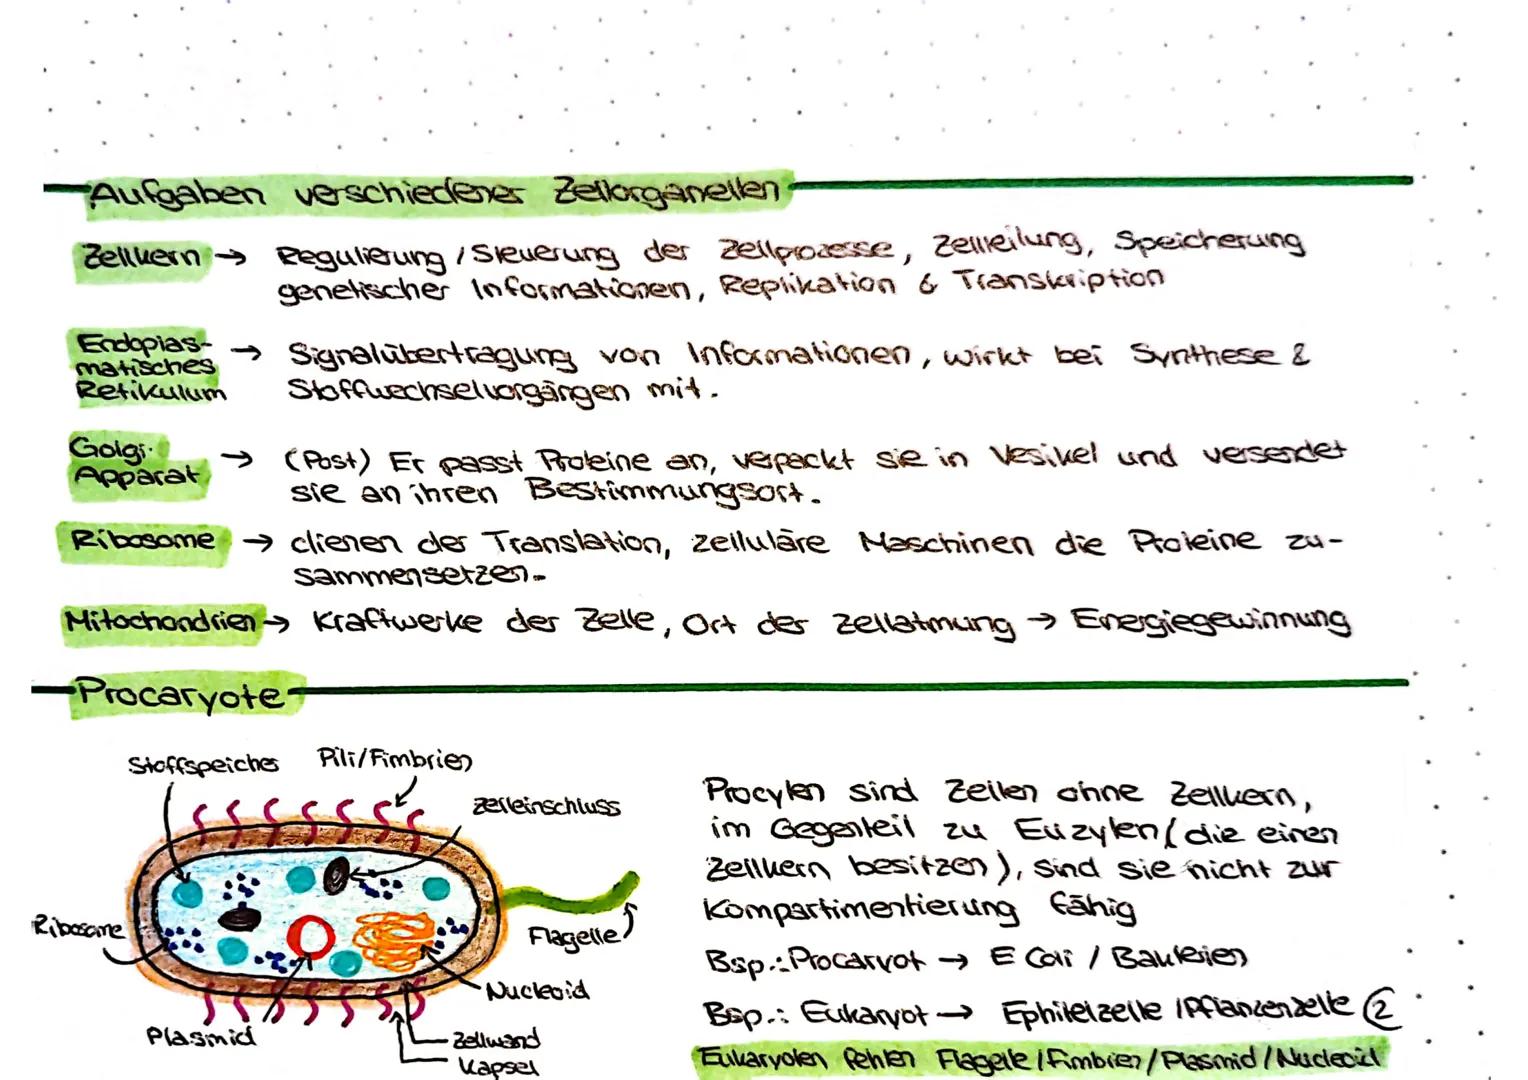 Aufgaben verschiedener Zellorganellen
Zellkern → Regulierung / Steuerung der Zellprozesse, Zellteilung, Speicherung
genetischer Informationen, Replikation & Transkription
Endoplas-
matisches
Retikulum → Signalübertragung von Informationen, wirkt bei Synthese &
Stoffwechselvorgängen mit.
Golgi-
Apparat → (Post) Er passt Proteine an, verpackt sie in Vesikel und versendet
sie an ihren Bestimmungsort.
Ribosome → dienen der Translation, zelluläre Maschinen die Proteine zu-
sammensetzen.
Mitochondrien → Kraftwerke der Zelle, Ort der Zellatmung → Energiegewinnung
Procaryote
Stoffspeicher
Pili/Fimbrien
Zelleinschluss
Ribosome
Flagelle
Nucleoid
Plasmid
Zellwand
Kapsel
Procyten sind Zellen ohne Zellkern,
im Gegenteil zu Euzyten (die einen
Zellkern besitzen), sind sie nicht zur
Kompartimentierung fähig
Bsp.: Procaryot → E Coli / Bakterien
Bsp.: Eukaryot → Ephitelzelle / Pflanzenzelle 2
Eukaryoten fehlen Flagelle / Fimbrien / Plasmid / Nucleoid